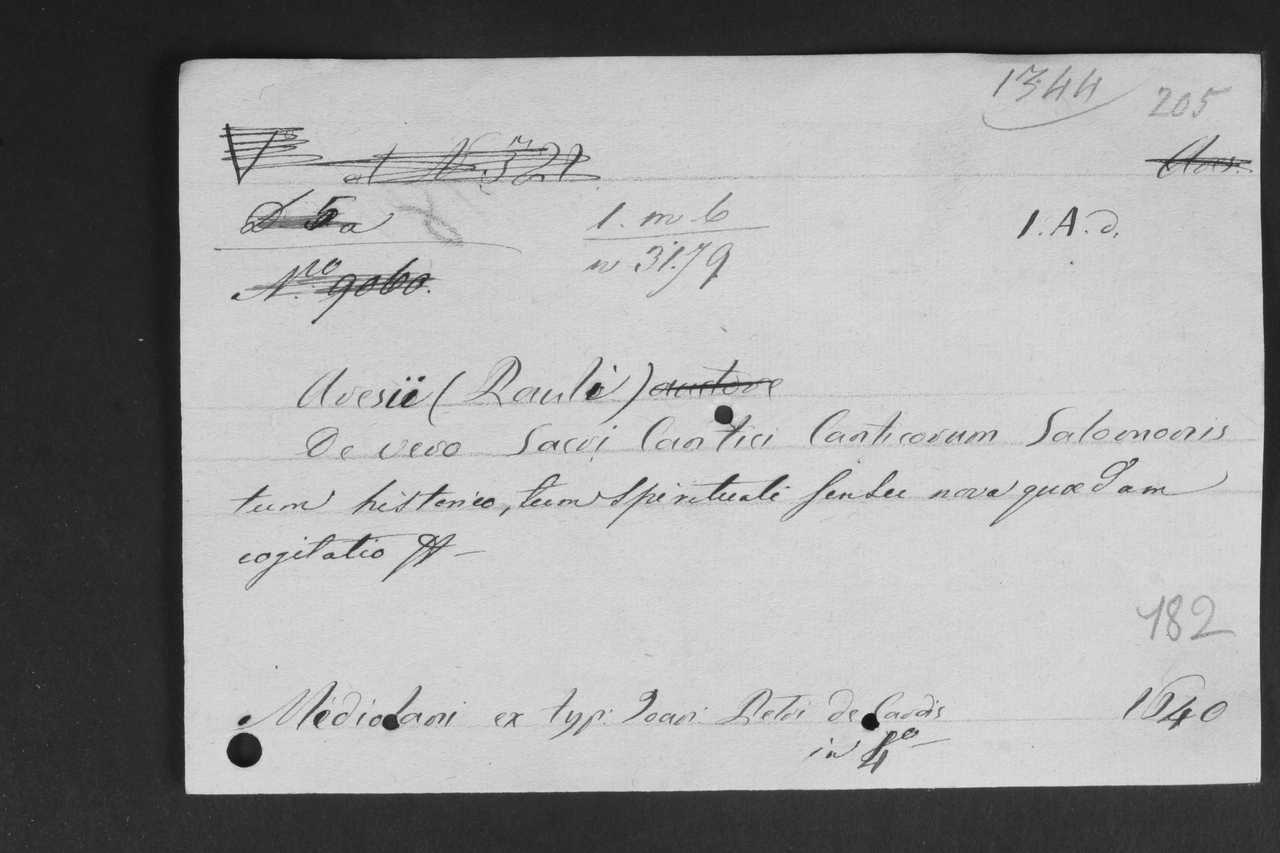 1344
205
N. 321
D 5 a
1. m b
1. A. d.
n 3179
N.ro 9060.
Aresii (Pauli) auctore
De vero Sacri Cantici Canticorum Salomonis
tum historico, tum spirituali sensu nova quædam
cogitatio
182
Mediolani ex typ. Joan. Petri de Cardis 1640
in 4o